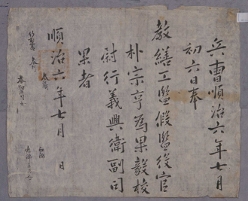 兵曹順治六年七月
初六日奉
教繕工監假監役官
朴宗亨爲果毅校
尉行義興衛副司
果者
順治六年七月　日